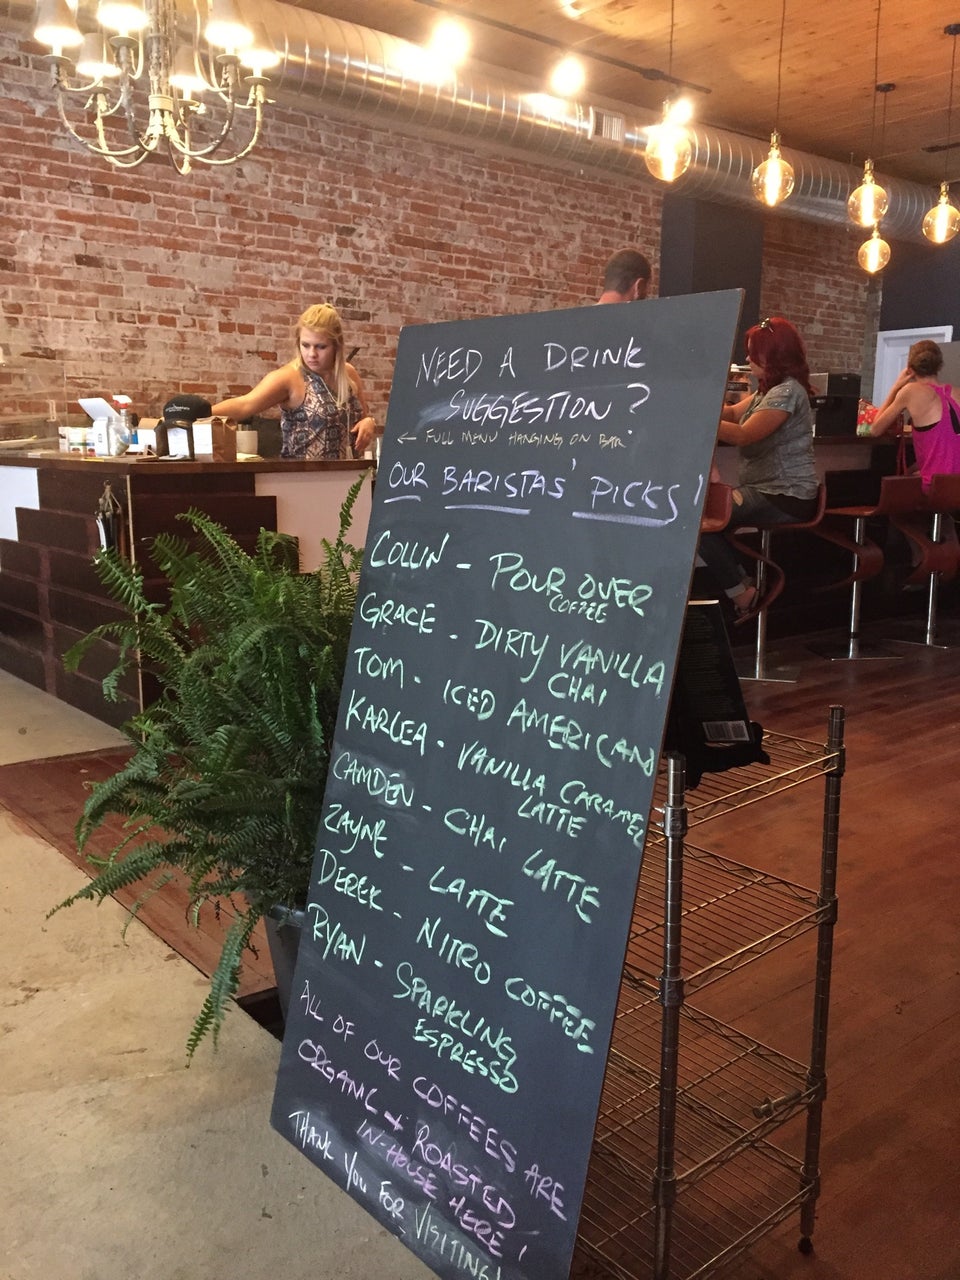 NEED A DRINK
SUGGESTION?
← FULL MENU HANGING ON BAR.
OUR BARISTAS' PICKS!
COLLIN - POUR OVER
COFFEE
GRACE - DIRTY VANILLA
CHAI
TOM - ICED AMERICANO
KARLEA - VANILLA CARAMEL
LATTE
CAMDEN - CHAI LATTE
ZAYNE - LATTE
DEREK - NITRO COFFEE
RYAN - SPARKLING
ESPRESSO
ALL OF OUR COFFEES ARE
ORGANIC + ROASTED
IN-HOUSE HERE!
THANK YOU FOR VISITING!